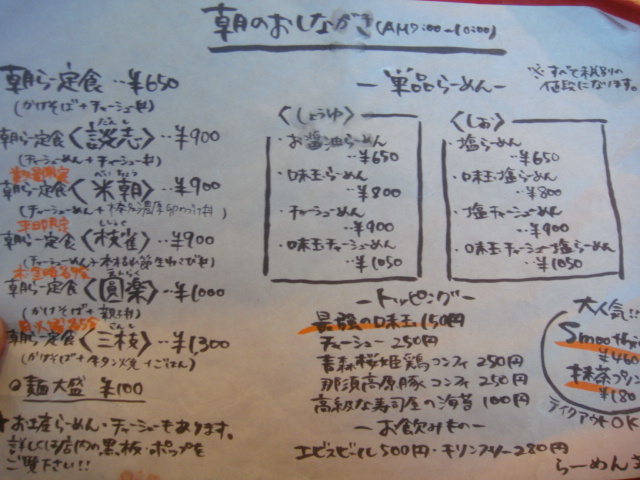 朝のおしながき(AM7:00-10:00)
※すべて税別の
値段になります。
朝らー定食‥¥650
(かけそば+チャーシュー丼)
朝らー定食〈談志〉‥¥900
(チャーシューめん+チャーシュー丼)
朝らー定食〈米朝〉‥¥900
朝らー定食〈枝雀〉‥¥900
朝らー定食〈圓楽〉‥¥1000
(かけそば+親子丼)
朝らー定食〈三枝〉‥¥1,300
(かけそば+牛タン焼+ごはん)
麺大盛 ¥100
お土産らーめん・チャーシューもあります。
詳しくは店内の黒板・ポップを
ご覧下さい!!
-単品らーめん-
〈しょうゆ〉
・お醤油らーめん
‥¥650
・味玉らーめん
‥¥800
・チャーシューめん
‥¥900
・味玉チャーシューめん
‥¥1050
〈しお〉
・塩らーめん
‥¥650
・味玉塩らーめん
‥¥800
・塩チャーシューめん
‥¥900
・味玉チャーシュー塩らーめん
‥¥1050
-トッピング-
最強の味玉150円
チャーシュー 250円
青森桜姫鶏コンフィ 250円
那須高原豚コンフィ 250円
高級な寿司屋の海苔 100円
-お飲みもの-
エビスビール500円・キリンフリー280円
大人気!!
¥460
抹茶プリン
¥180
テイクアウトOK
らーめん